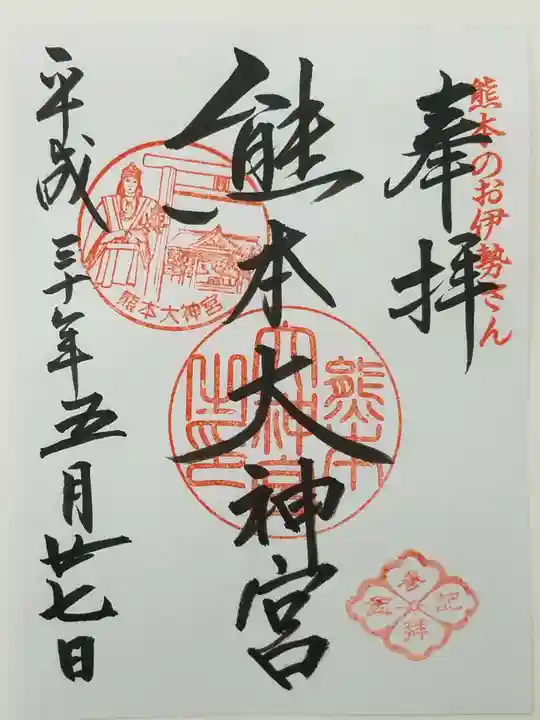 熊本のお伊勢さん
奉拝
熊本大神宮
熊本大神宮
熊本大神宮之印
平成三十年五月廿七日
参拝記